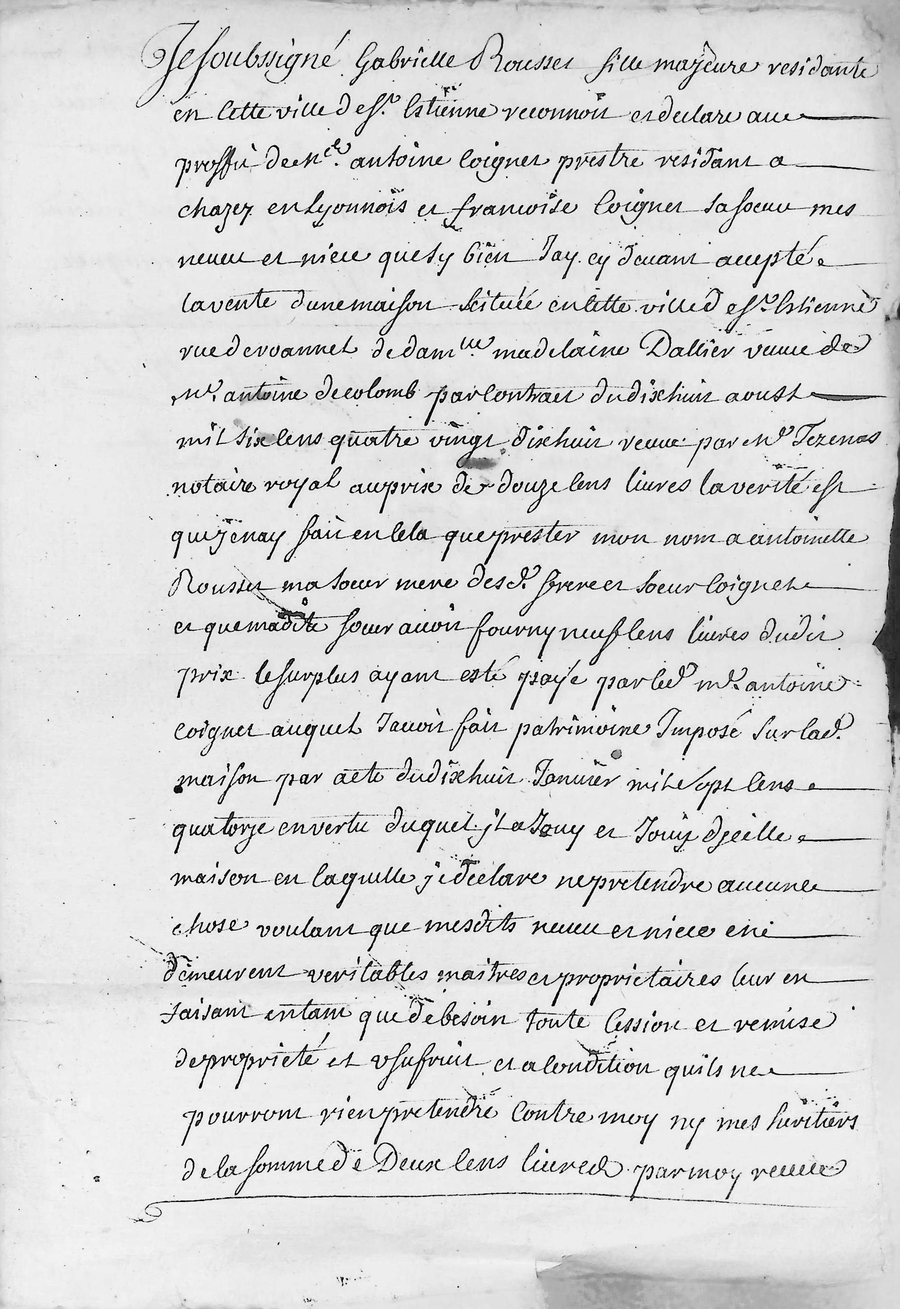 Je soubssigné Gabrielle Rousset fille majeure residante
en cette ville de st. Estienne reconnoit et declare au
proffit de mre. antoine Coignet prestre residant a
chazez en Lyonnois et francoise Coignet sa soeur mes
neveu et niece que sy bien Jay cy devant accepté
la vente dune maison scituée en cette ville de st. Estienne
rue de roannel de damlle madelaine Dallier veuve de
mr. antoine de colomb par contract du dixhuit aoust
mil six cens quatre vingt dixhuit receu par me Tezenas
notaire royal au prix de douze cens livres la verité est
que je nay fait en cela que prester mon nom a antoinette
Rousset ma soeur mere desd. frere et soeur Coignet
et que madite soeur avoit fourny neuf cens livres dudit
prix le surplus ayant esté payé par led. mre. antoine
coignet auquel Javoit fait patrimoine Imposé sur lad.
maison par acte du dixhuit Janvier mil sept cens
quatorze en vertu duquel jl a Jouy et Jouit djcelle
maison en laquelle je declare ne pretendre aucune
chose voulant que mesdits neveu et niece en
demeurent veritables maitres et proprietaires leur en
faisant en tant que de besoin toute cession et remise
de proprieté et vsufruit et a condition quils ne
pourront rien pretendre contre moy ny mes heritiers
de la somme de Deux cens livres par moy receue